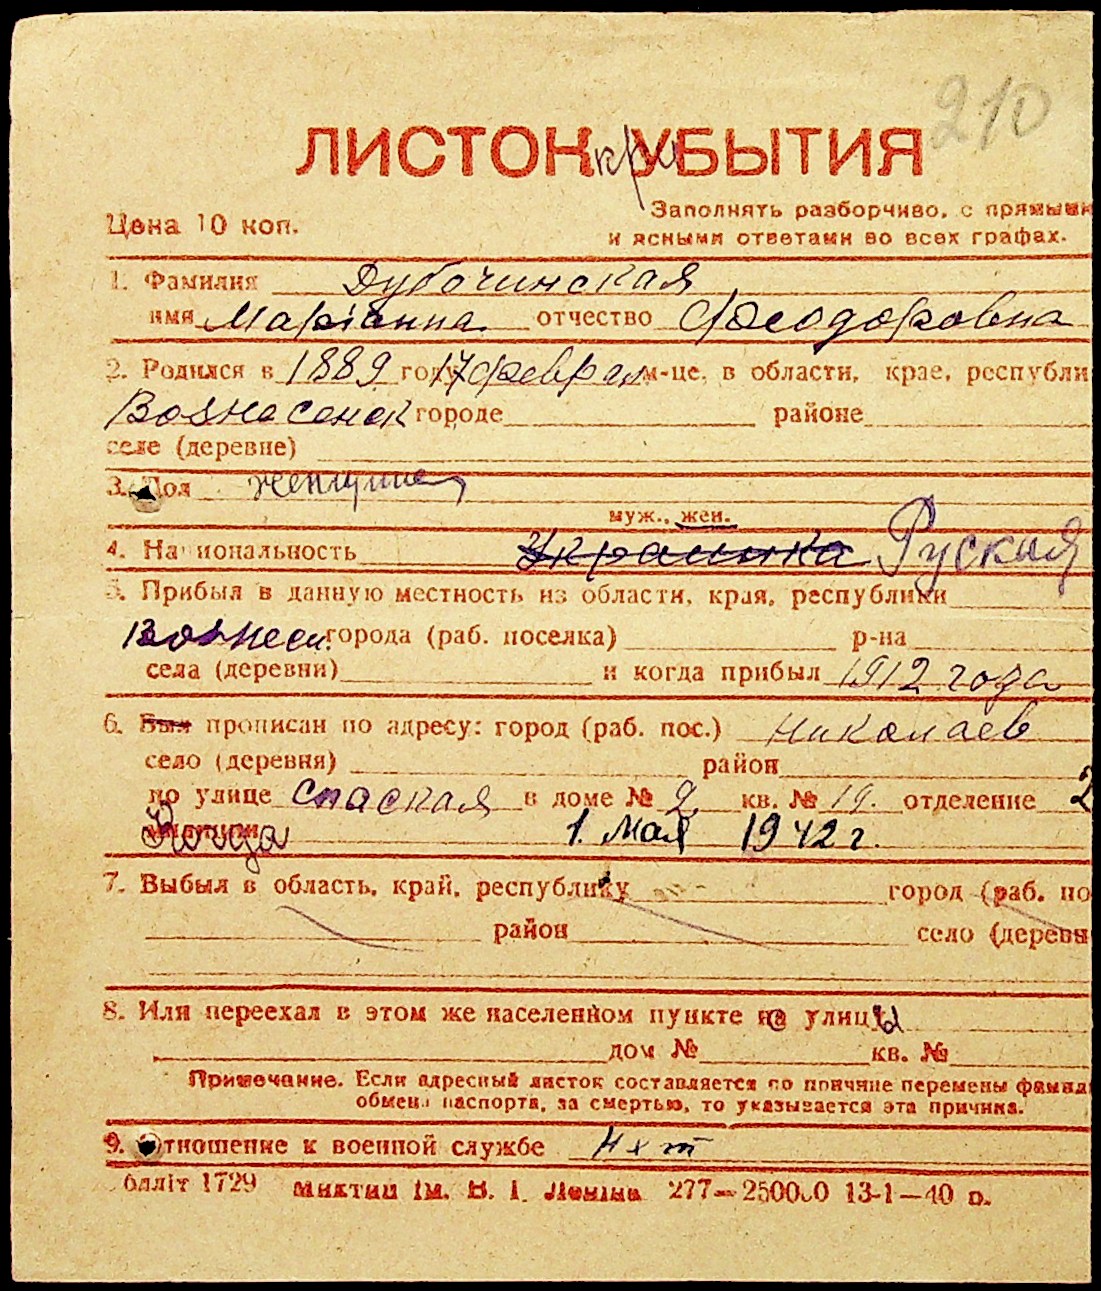 210
ЛИСТОК при УБЫТИЯ
Цена 10 коп.
Заполнять разборчиво, с прямыми
и ясными ответами во всех графах.
1. Фамилия Дубочинская
имя Маріанна отчество Феодоровна
2. Родился в 1889 году 17 феврал м-це, в области, крае, республи
Вознесенск городе районе
селе (деревне)
3. Пол женщина
муж., жен.
4. Национальность Украинка Руская
5. Прибыл в данную местность из области, края, республики
Вознесен. города (раб. поселка) р-на
села (деревни) и когда прибыл 1912 года
6. Был прописан по адресу: город (раб. пос.) николаев
село (деревня) район
по улице Спаская в доме № 2 кв. № 19. отделение 2
милиции Когда 1. Мая 1942 г.
7. Выбыл в область, край, республику город (раб. по
район село (деревн
8. Или переехал в этом же населенном пункте на улицы
дом № кв. №
Примечание. Если адресный листок составляется по причине перемены фамил
обмена паспорта, за смертью, то указывается эта причина.
9. Отношение к военной службе нет
бліт 1729 Миктип ім. В. І. Леніна 277—250000 13-1—40 р.